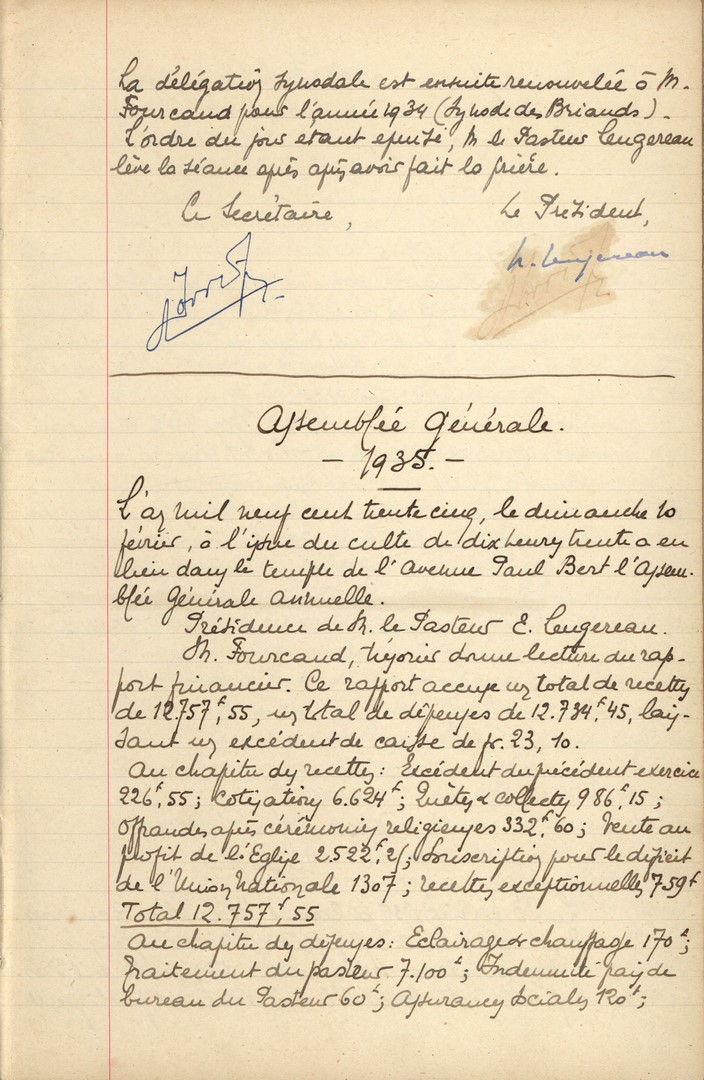 La délégation synodale est ensuite renouvelée à M.
Fourcaud pour l'année 1934 (Synode des Briands).
L'ordre du jour étant épuisé, M. le Pasteur Lengereau
lève la séance après après avoir fait la prière.
Le Secrétaire,
Le Président,
Assemblée Générale.
- 1935. -
L'an mil neuf cent trente cinq, le dimanche 10
février, à l'issue du culte de dix heures trente a eu
lieu dans le temple de l'Avenue Paul Bert l'Assem-
blée Générale annuelle.
Présidence de M. le Pasteur E. Lengereau.
M. Fourcaud, trésorier donne lecture du rap-
port financier. Ce rapport accuse un total de recettes
de 12.757f,55, un total de dépenses de 12.734f,45, lais-
sant un excédent de caisse de fr. 23,10.
Au chapitre des recettes : Excédent du précédent exercice
226f,55 ; cotisations 6.624f ; Quêtes & collectes 986f,15 ;
Offrandes après cérémonies religieuses 332f,60 ; Vente au
profit de l'Eglise 2.522f,25 ; Souscription pour le déficit
de l'Union Nationale 1307 ; recettes exceptionnelles 759f
Total 12.757f,55
Au chapitre des dépenses : Eclairage & chauffage 170f ;
Traitement du pasteur 7.100f ; Indemnité frais de
bureau du Pasteur 60f ; Assurances sociales 120f ;